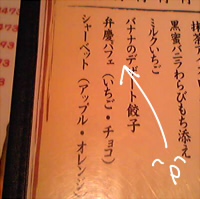 抹茶
黒蜜バニラわらびもち添え
ミルクいちご
バナナのデザート餃子
弁慶パフェ(いちご・チョコ)
シャーベット(アップル・オレンジ)